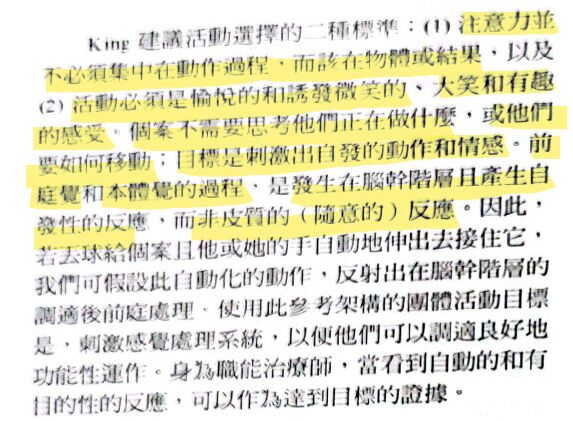 King 建議活動選擇的二種標準：(1) 注意力並
不必須集中在動作過程，而該在物體或結果，以及
(2) 活動必須是愉悅的和誘發微笑的、大笑和有趣
的感受。個案不需要思考他們正在做什麼，或他們
要如何移動；目標是刺激出自發的動作和情感。前
庭覺和本體覺的過程，是發生在腦幹階層且產生自
發性的反應，而非皮質的（隨意的）反應。因此，
若丟球給個案且他或她的手自動地伸出去接住它，
我們可假設此自動化的動作，反射出在腦幹階層的
調適後前庭處理。使用此參考架構的團體活動目標
是，刺激感覺處理系統，以便他們可以調適良好地
功能性運作。身為職能治療師，當看到自動的和有
目的性的反應，可以作為達到目標的證據。